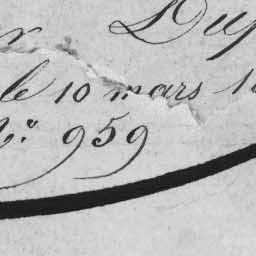 Dup
le 10 mars 1
N° 959